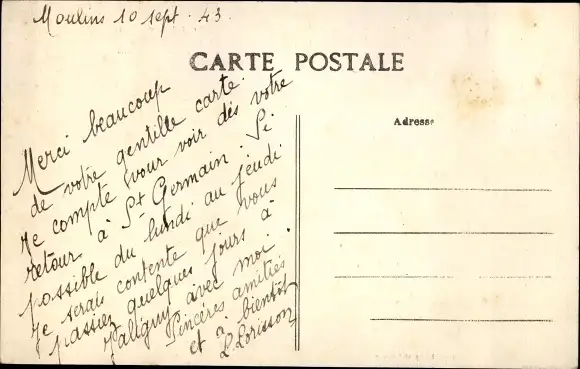 Moulins 10 sept. 43
CARTE POSTALE
Adresse
Merci beaucoup
de votre gentille carte.
Je compte vour voir dès votre
retour à St Germain. Si
possible du lundi au jeudi
Je serais contente que vous
passiez quelques jours à
Jaligny avec moi.
Sincères amitiés
et à bientôt
L. Lorisson